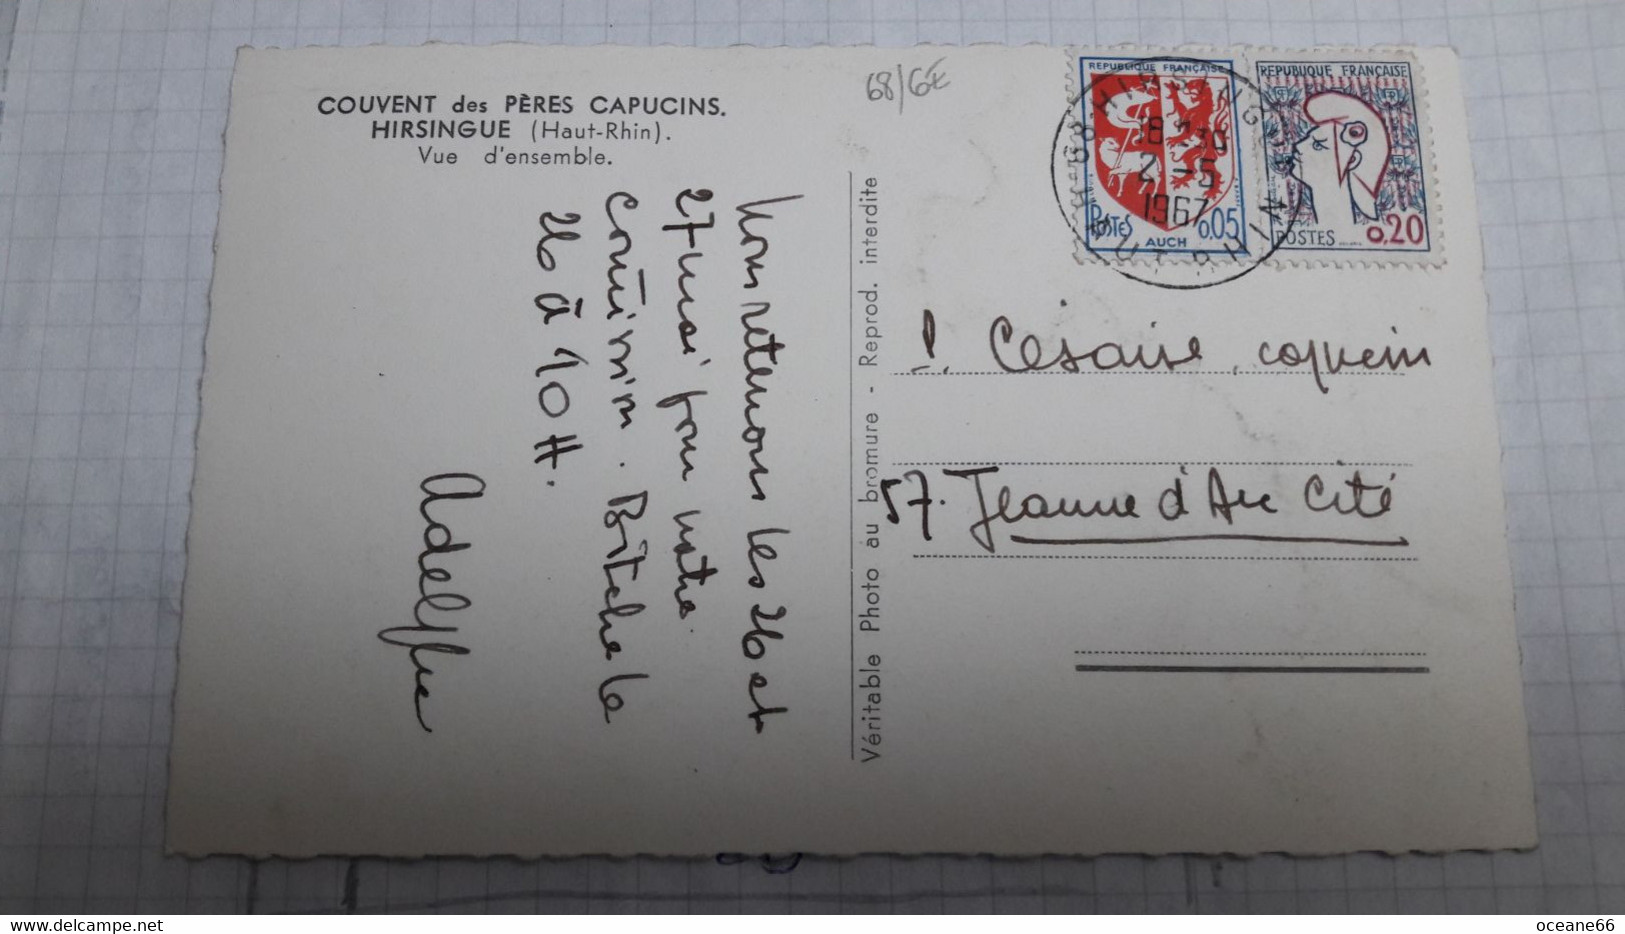 COUVENT des PÈRES CAPUCINS.
HIRSINGUE (Haut-Rhin).
Vue d'ensemble.
68/6€
les 26 et
27 mai pour notre
26 à 10H.
Adelphe
Véritable Photo au bromure - Reprod. interdite
REPUBLIQUE FRANÇAISE
POSTES 0,05
AUCH
REPUBLIQUE FRANÇAISE
POSTES 0,20
68 HIRSINGUE
18 H30
2 -5
1967
HAUT RHIN
P. Césaire, capucin
57. Jeanne d'Arc Cité
oceane66